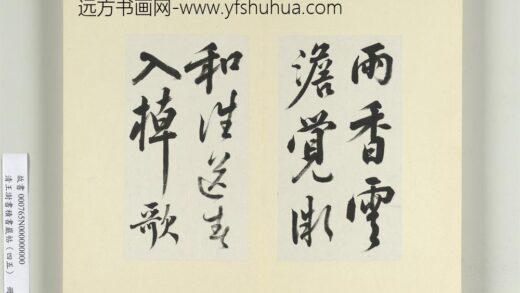 远方书画网-www.yfshuhua.com
雨香雲
澹覺微
和誰送春
入棹歌
故書 000765N000000000
清王澍書積書巖帖（四五）